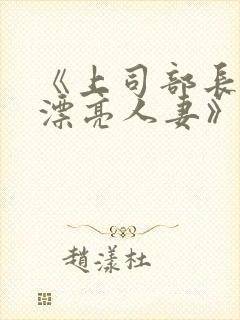 《上司部長
漂亮人妻》
趙漾杜